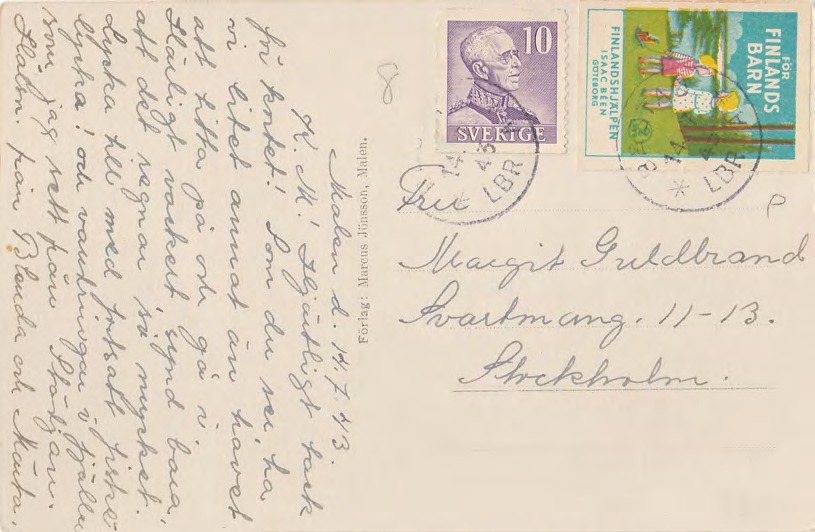 Malen d. 14.7.43.
K. M! Hjärtligt tack
för kortet! Som du ser, ha
vi litet annat än havet
att titta på och gå i.
Härligt vackert synd bara,
att det regnar så mycket.
Lycka till med fortsatt fiske-
lycka! och vandringar i fjällen
som jag sett från Städjan.
Hälsn. från Blenda och Märta.
Förlag: Marcus Jönsson, Malen.
10
SVERIGE
FÖR
FINLANDS
BARN
FINLANDSHJÄLPEN
ISAAC BÉEN
GÖTEBORG
14
43
LBR
14
43
LBR
Fru
Margit Guldbrand
Svartmang. 11-13.
Stockholm.